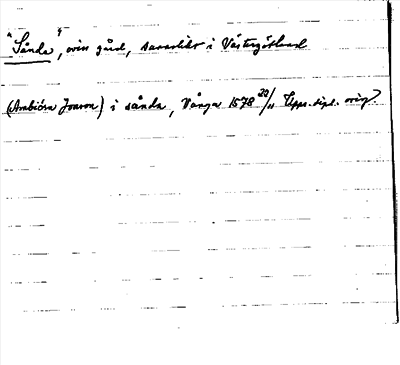 "Sånda", oviss gård, sannolikt i Västergötland
(Arnbiörn Jonson) i sånda, Vånga 1578 22/11 Upps. dipl. orig.